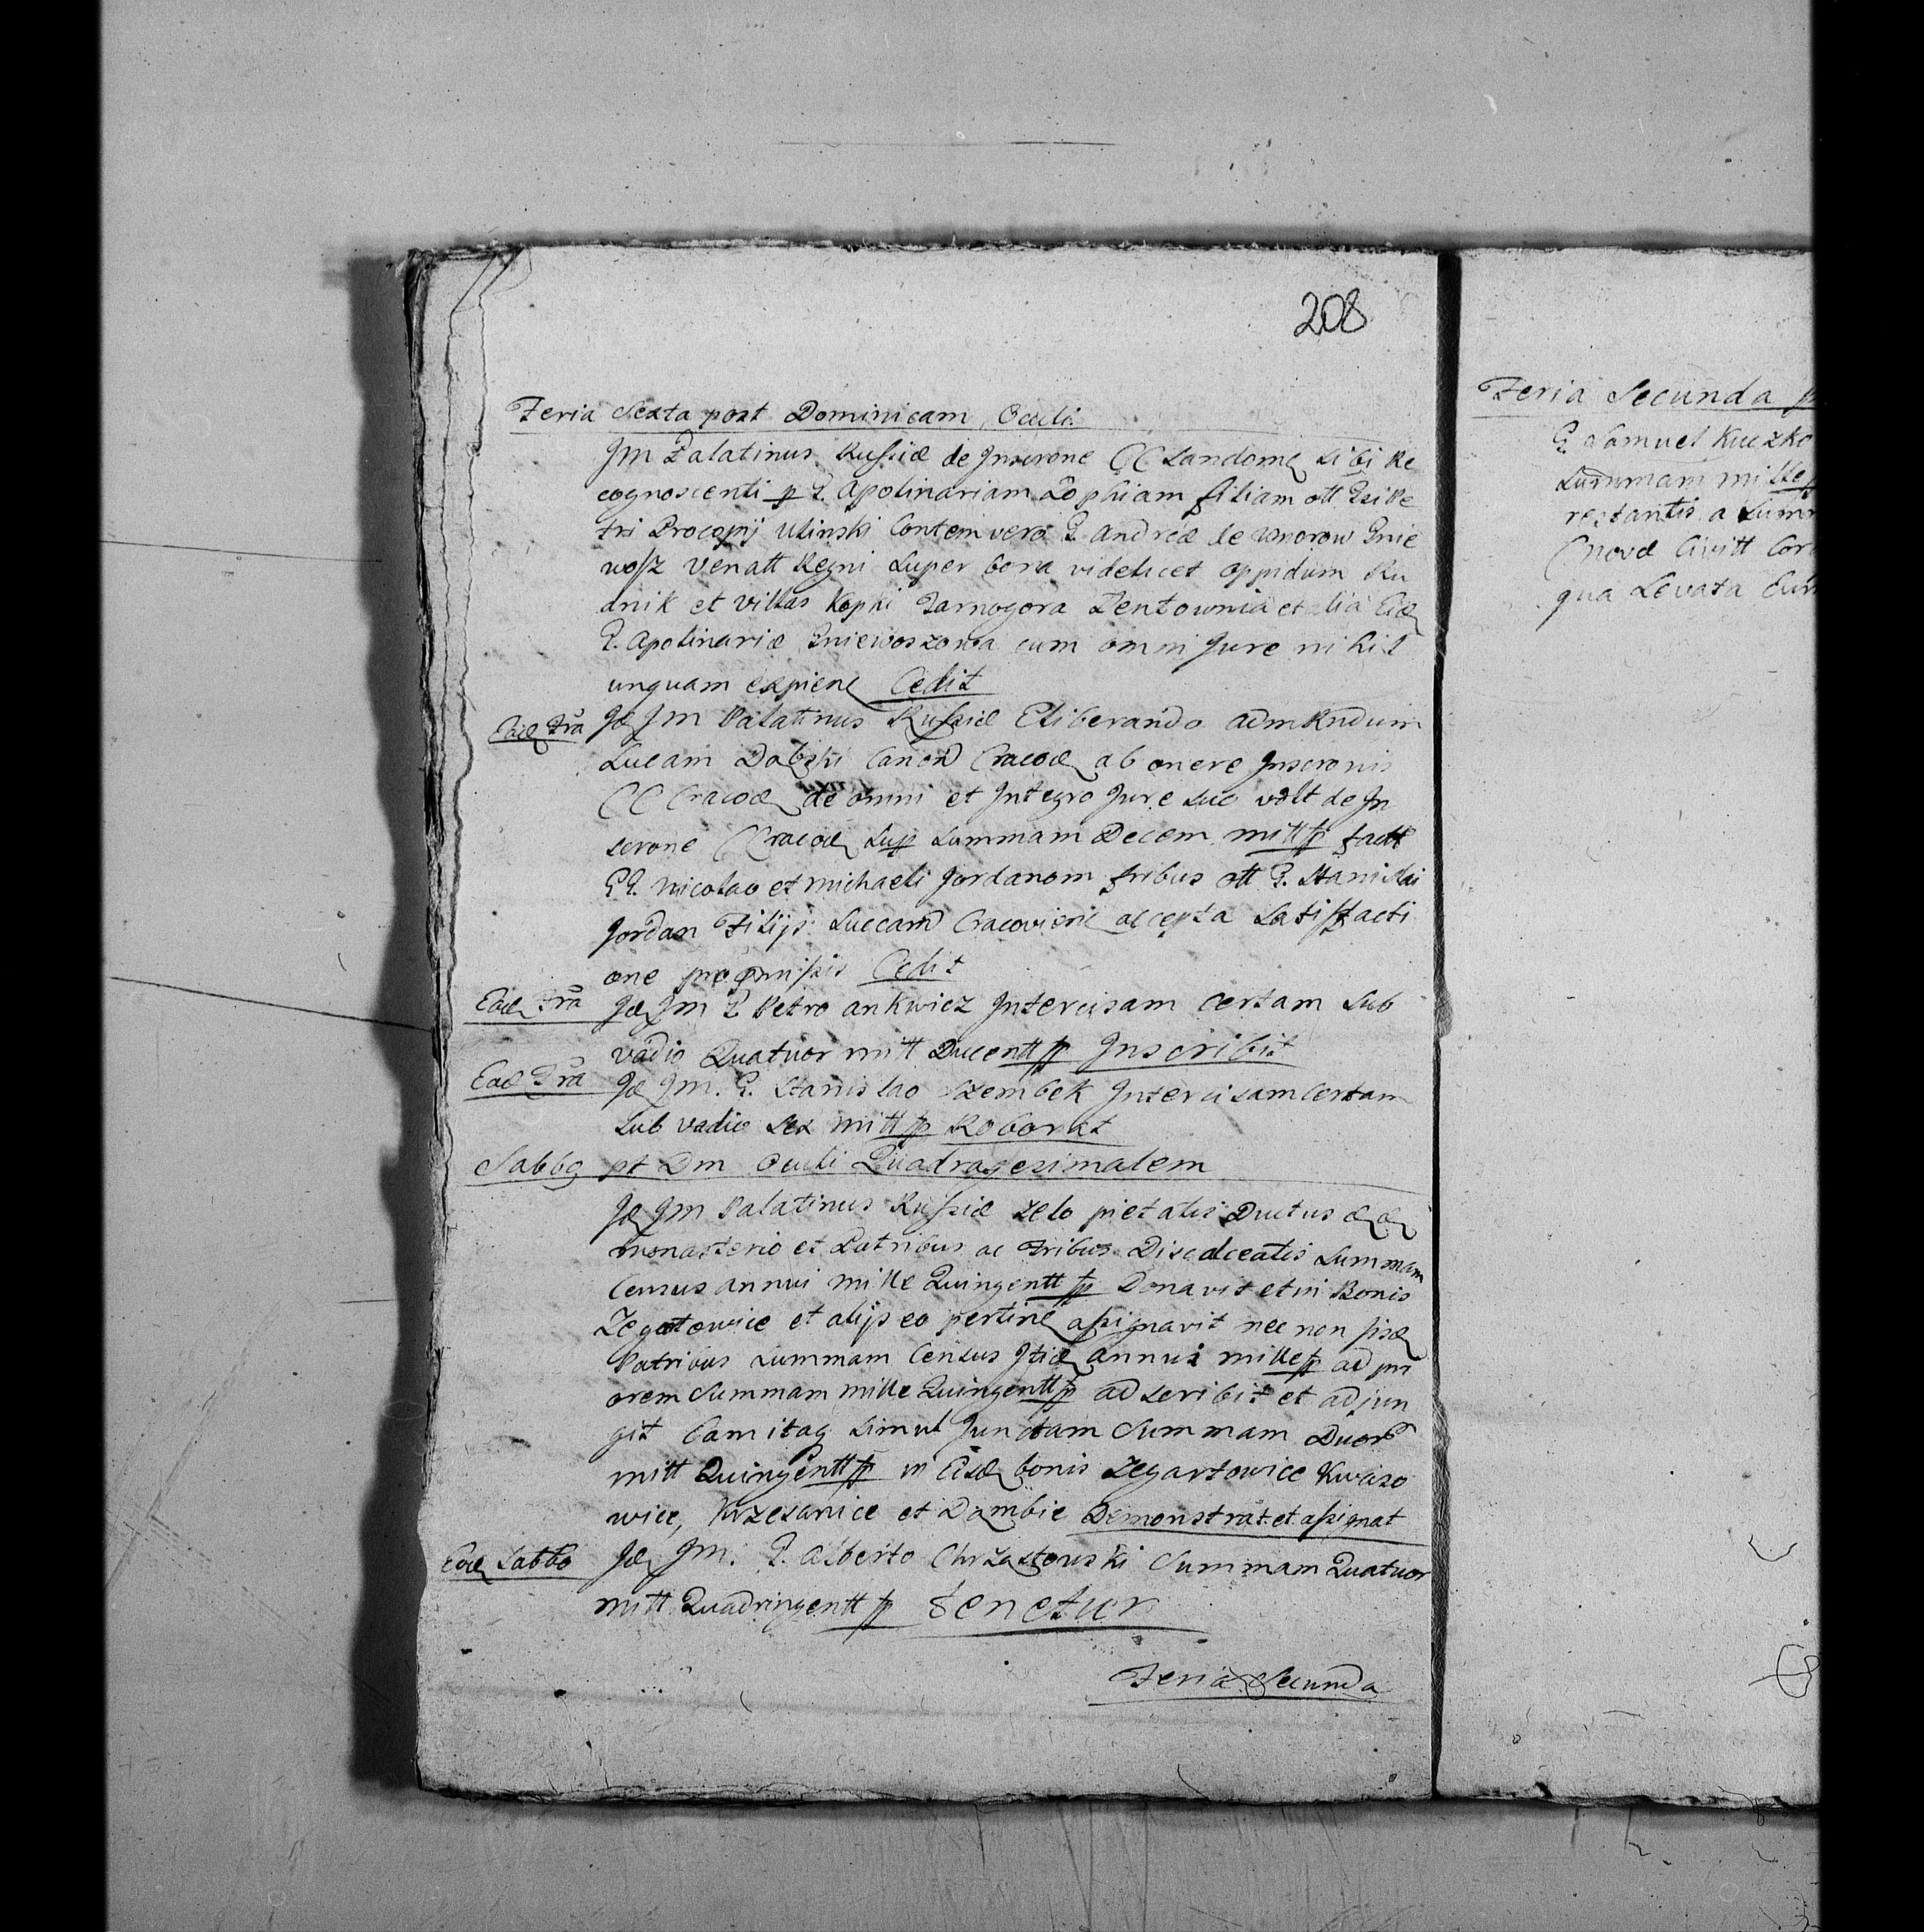 208
Feria Sexta post Dominicam Oculi
Jm Palatinus Russiæ de Inscrone CC Sandome sibi Re
cognoscenti p G. Apolinariam Zophiam filiam ott Gsi Pe
tri Procopij Ulinski Contem vero G. Andreæ de Unorow Gnie
wosz Venatt Regni Super bona videlicet oppidum Ru
dnik et villas Kopki Tarnogora Zentownia et alia Eæ
G. Apolinariæ Gniewoszowa cum omni Jure nihil
unquam expiene Cedit
Eaæ Fra Jæ Jm Palatinus Russiæ Eliberando admRndum
Lucam Dabski Canon Cracoæ ab onere Inscronis
CC Cracoæ de omni et Integro Jure suo vdlt de In
scrone CCracoæ Sup Summam Decem mitt fp factt
GG. Nicolao et Michaeli Jordanom fribus ott G. Stanislai
Jordan Filijs Succam Cracoviene accepta Satisfacti
one pro omissis Cedit
Eaæ Fra Jæ Jm G Petro Ankwicz Intercisam certam Sub
vadio Quatuor mitt Ducentt fp Inscribit
Eaæ Fra Jæ Jm. G. Stanislao Szembek Intercisam Certam
Sub vadio Sex mitt fp Roborat
Sabbo pt Dm Oculi Quadragesimalem
Jæ Jm Palatinus Russiæ zelo pietatis Ductus æ æ
Monasterio et Patribus ac Fribus Discalceatis Summam
Census annui mille Quingentt fp Donavit et in Bonis
Zegartowice et alijs eo pertine assignavit nec non ijsæ
Patribus Summam Census Jtiæ annui mille fp ad pri
orem Summam mille Quingentt fp adscribit et adjun
git Eamitaq simul Junctam Summam Duor
mitt Quingentt fp in Eisæ bonis Zegartowice Kwaso
wice, Krzesanice et Dąmbie Demonstrat et assignat
Eaæ Sabbo Jæ Jm. G. Alberto Chrząstowski Summam Quatuor
mitt Quadringentt fp Tenetur
Feria Secunda
Feria Secunda p
G. Samuel Kuczko
Summam mille
restantis a Summ
Novæ Civitt Cor
qua Levata Eun